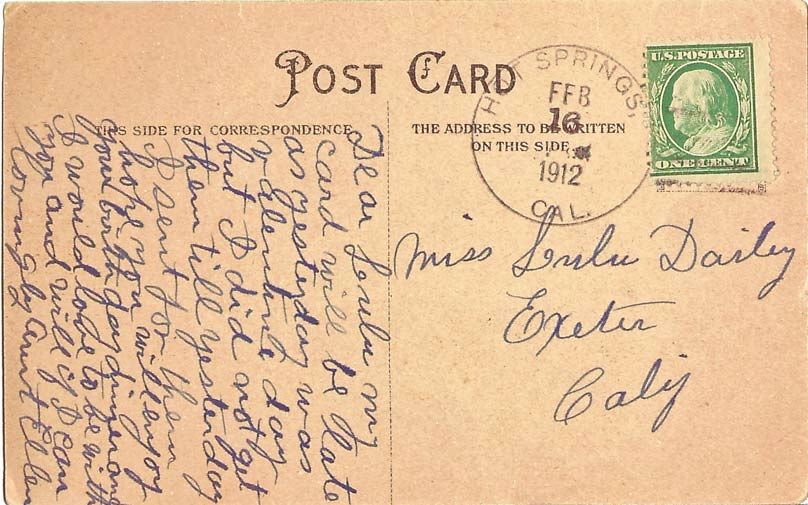 POST CARD
THIS SIDE FOR CORRESPONDENCE
THE ADDRESS TO BE WRITTEN
ON THIS SIDE
HOT SPRINGS,
FEB
16
1912
CAL.
U.S. POSTAGE
ONE CENT
Dear Lulu my
card will be late
as yesterday was
valentine day
but I did not get
them till yesterday
I sent for them
hope you will enjoy
your birthday dinner and
I would love to be with
you and will if I can
lovingly aunt Ellen
Miss Lulu Dailey
Exeter
Calif